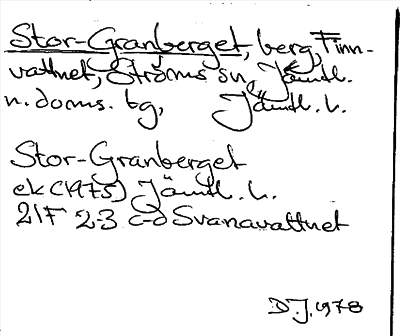 Stor-Granberget, berg, Finn-
vattnet, Ströms sn, Jämtl.
n. doms. bg, Jämtl. l.
Stor-Granberget
ek (1975) Jämtl. l.
21F 2-3 c-d Svanavattnet
D.J. 1978